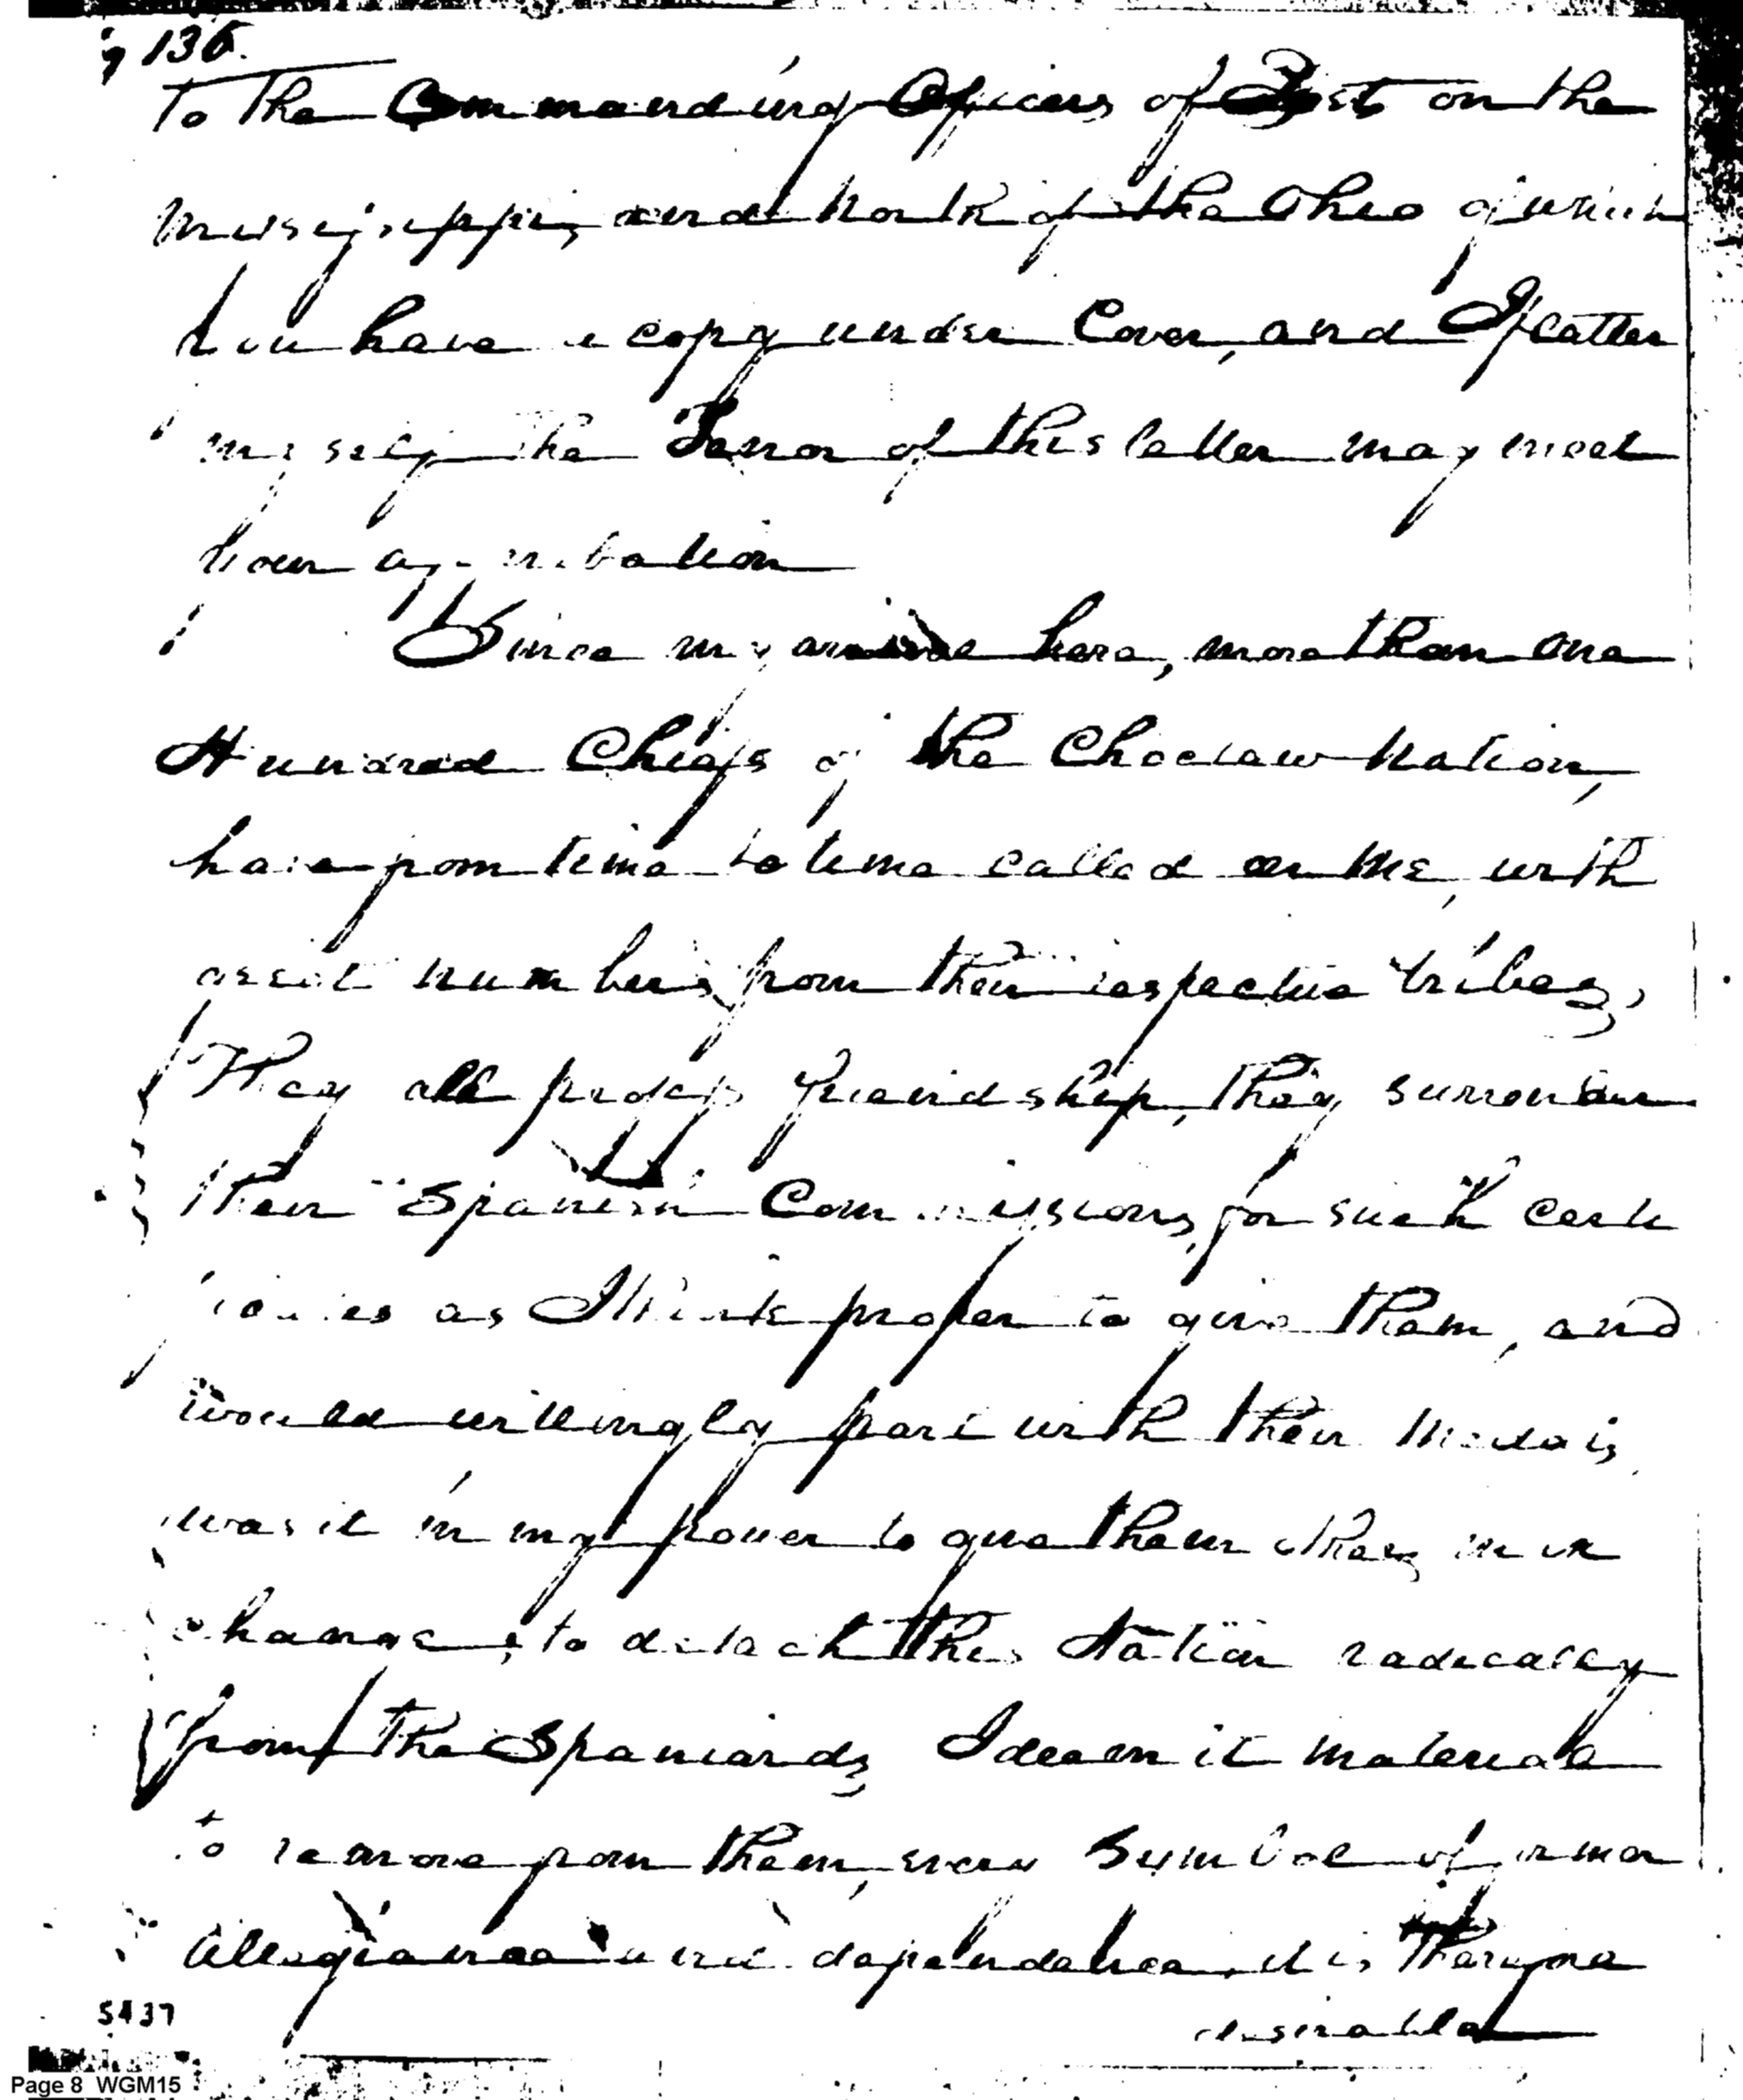 136.
To The Commanding Officers of Post on the
Missisippi, and North of the Ohio of which
you have a copy under Cover, and I flatter
myself the Tenor of this letter may meet
your approbation
Since my arrival here, more than one
Hundred Chiefs of the Choctaw Nation,
have from time to time called on me, with
great numbers from their respective tribes,
They all profess friendship, they surrender
their Spanish Commissions, for such certi
ficates as I think proper to give them, and
would willingly part with their Medals,
was it in my power to give them others in ex
change, to detach this Nation radically
from the Spaniards, I deem it material
to remove from them, every Symbol of former
Allegiance and dependance, it is Therefore
desirable
5437
Page 8 WGM15